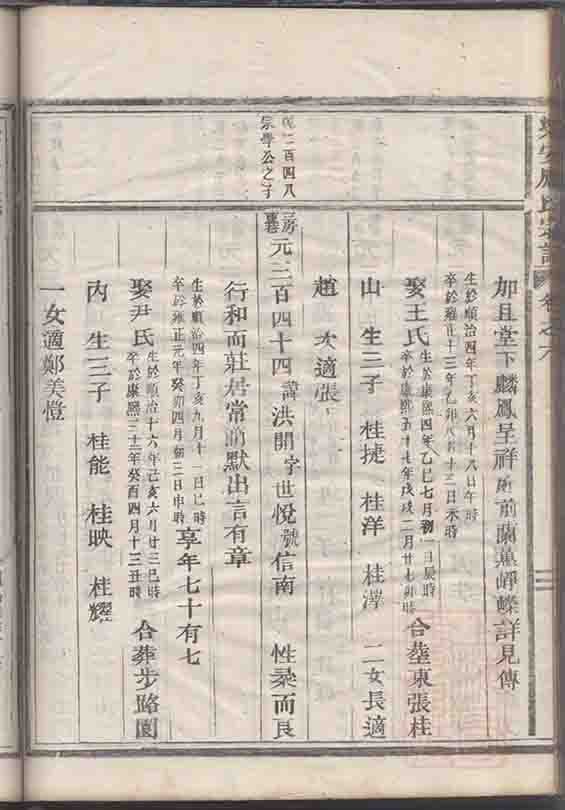 加且堂下麟鳳呈祥所前蘭蕙崢嶸詳見傳
生於順治四年丁亥六月十八日午時
卒於雍正十三年乙卯八月十三日未時
娶王氏
生於康熙四年乙巳七月初一日辰時
卒於康熙五十七年戊戌二月廿七卯時
合塟東張桂
山 生三子 桂捷 桂洋 桂澤 二女長適
趙 次適張
二百四八
宗學公之子
房
元三百四十四 諱洪開字世悅號信南 性義而良
行和而莊居常簡默出言有章
生於順治四年丁亥九月十一日巳時
卒於雍正元年癸卯四月初三日申時
享年七十有七
娶尹氏
生於順治十六年己亥六月廿三巳時
卒於康熙三十二年癸酉四月十三丑時
合葬步路園
內 生三子 桂能 桂映 桂耀
一女適鄭美愷